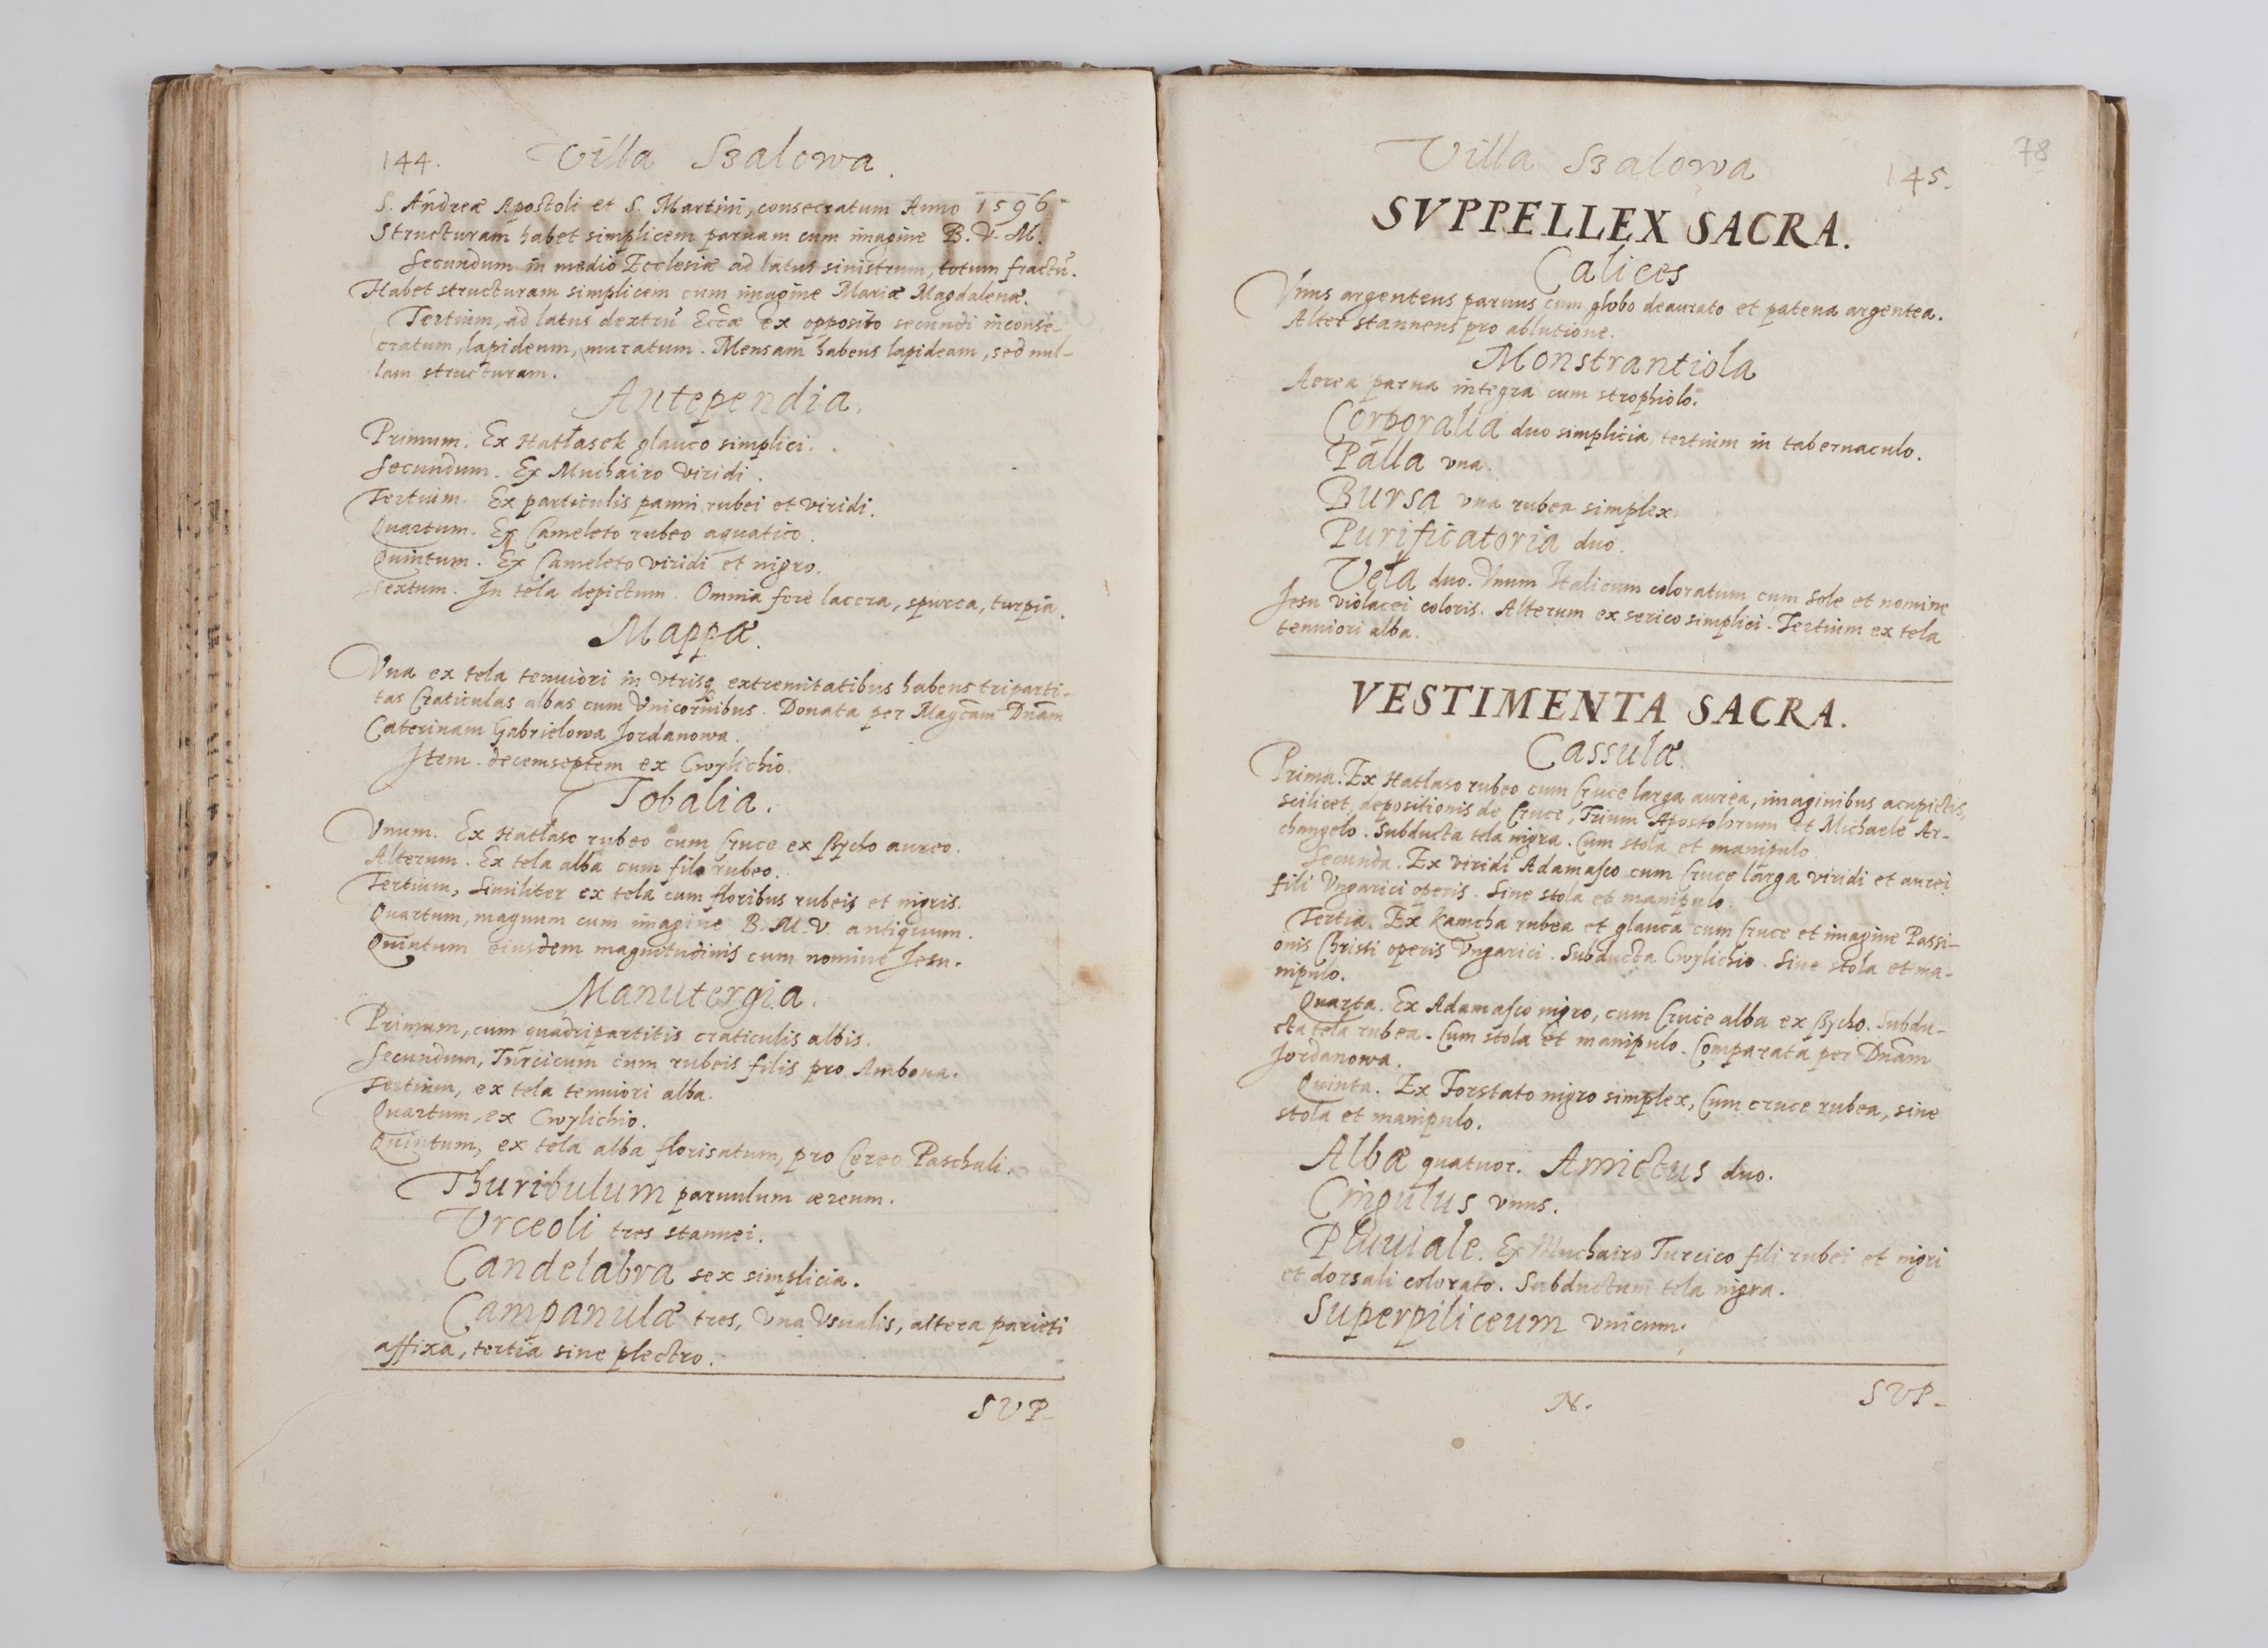 144. Villa Szalowa.
S. Andreæ Apostoli et S. Martini, consecratum Anno 1596.
Structuram habet simplicem paruam cum imagine B. V. M.
Secundum in medio Ecclesiæ ad latus sinistrum, totum fractū.
Habet structuram simplicem cum imagine Mariæ Magdalenæ.
Tertium, ad latus dextrū Eccæ ex opposito secundi inconse-
cratum, lapideum, muratum. Mensam habens lapideam, sed nul-
lam structuram.
Antependia.
Primum. Ex Hatłasek glauco simplici.
Secundum. Ex Muchairo viridi.
Tertium. Ex particulis panni rubei et viridi.
Quartum. Ex Cameleto rubeo aquatico.
Quintum. Ex Cameleto viridi et nigro.
Sextum. In tela depictum. Omnia fere lacera, spurca, turpia.
Mappæ.
Vna ex tela tenuiori in vtrisq extremitatibus habens triparti-
tas Craticulas albas cum Vnicornibus. Donata per Magcam Dnam
Caterinam Gabrielowa Jordanowa.
Item. decemseptem ex Cwylichio.
Tobalia.
Vnum. Ex Hatłaso rubeo cum Cruce ex Bycho aureo.
Alterum. Ex tela alba cum filo rubeo.
Tertium, Similiter ex tela cum floribus rubeis et nigris.
Quartum, magnum cum imagine B. M. V. antiquum.
Quintum eiusdem magnitudinis cum nomine Jesu.
Manutergia.
Primum, cum quadripartitis craticulis albis.
Secundum, Turcicum cum rubeis filis pro Ambona.
Tertium, ex tela tenuiori alba.
Quartum, ex Cwylichio.
Quintum, ex tela alba florisatum, pro Cereo Paschali.
Thuribulum paruulum æreum.
Vrceoli tres stannei.
Candelabra sex simplicia.
Campanulæ tres, Vna Vsualis, altera parieti
affixa, tertia sine plectro.
SVP-
78
Villa Szalowa 145.
SVPPELLEX SACRA.
Calices
Vnus argenteus paruus cum globo deaurato et patena argentea.
Alter stanneus pro ablutione.
Monstrantiola
Aerea parua integra cum strophiolo.
Corporalia duo simplicia, tertium in tabernaculo.
Palla vna.
Bursa vna rubea simplex.
Purificatoria duo.
Vela duo. Vnum Italicum coloratum cum Sole et nomine
Jesu violacei coloris. Alterum ex serico simplici. Tertium ex tela
tenuiori alba.
VESTIMENTA SACRA.
Cassulæ.
Prima. Ex Hatłaso rubeo cum Cruce larga aurea, imaginibus acupictis,
scilicet, depositionis de Cruce, Trium Apostolorum et Michaele Ar-
changelo. Subducta tela nigra. Cum stola et manipulo.
Secunda. Ex viridi Adamasco cum Cruce larga viridi et aurei
fili Vngarici operis. Sine stola et manipulo.
Tertia. Ex Kamcha rubea et glauca cum Cruce et imagine Passi-
onis Christi operis Vngarici. Subducta Cwylichio. Sine stola et ma-
nipulo.
Quarta. Ex Adamasco nigro, cum Cruce alba ex Bycho. Subdu-
cta tela rubea. Cum stola et manipulo. Comparata per Dnam
Jordanowa.
Quinta. Ex Forstato nigro simplex, Cum cruce rubea, sine
stola et manipulo.
Albæ quatuor. Amictus duo.
Cingulus vnus.
Pluuiale. Ex Muchairo Turcico fili rubei et nigri
et dorsali colorato. Subductum tela nigra.
Superpiliceum vnicum.
N. SVP-